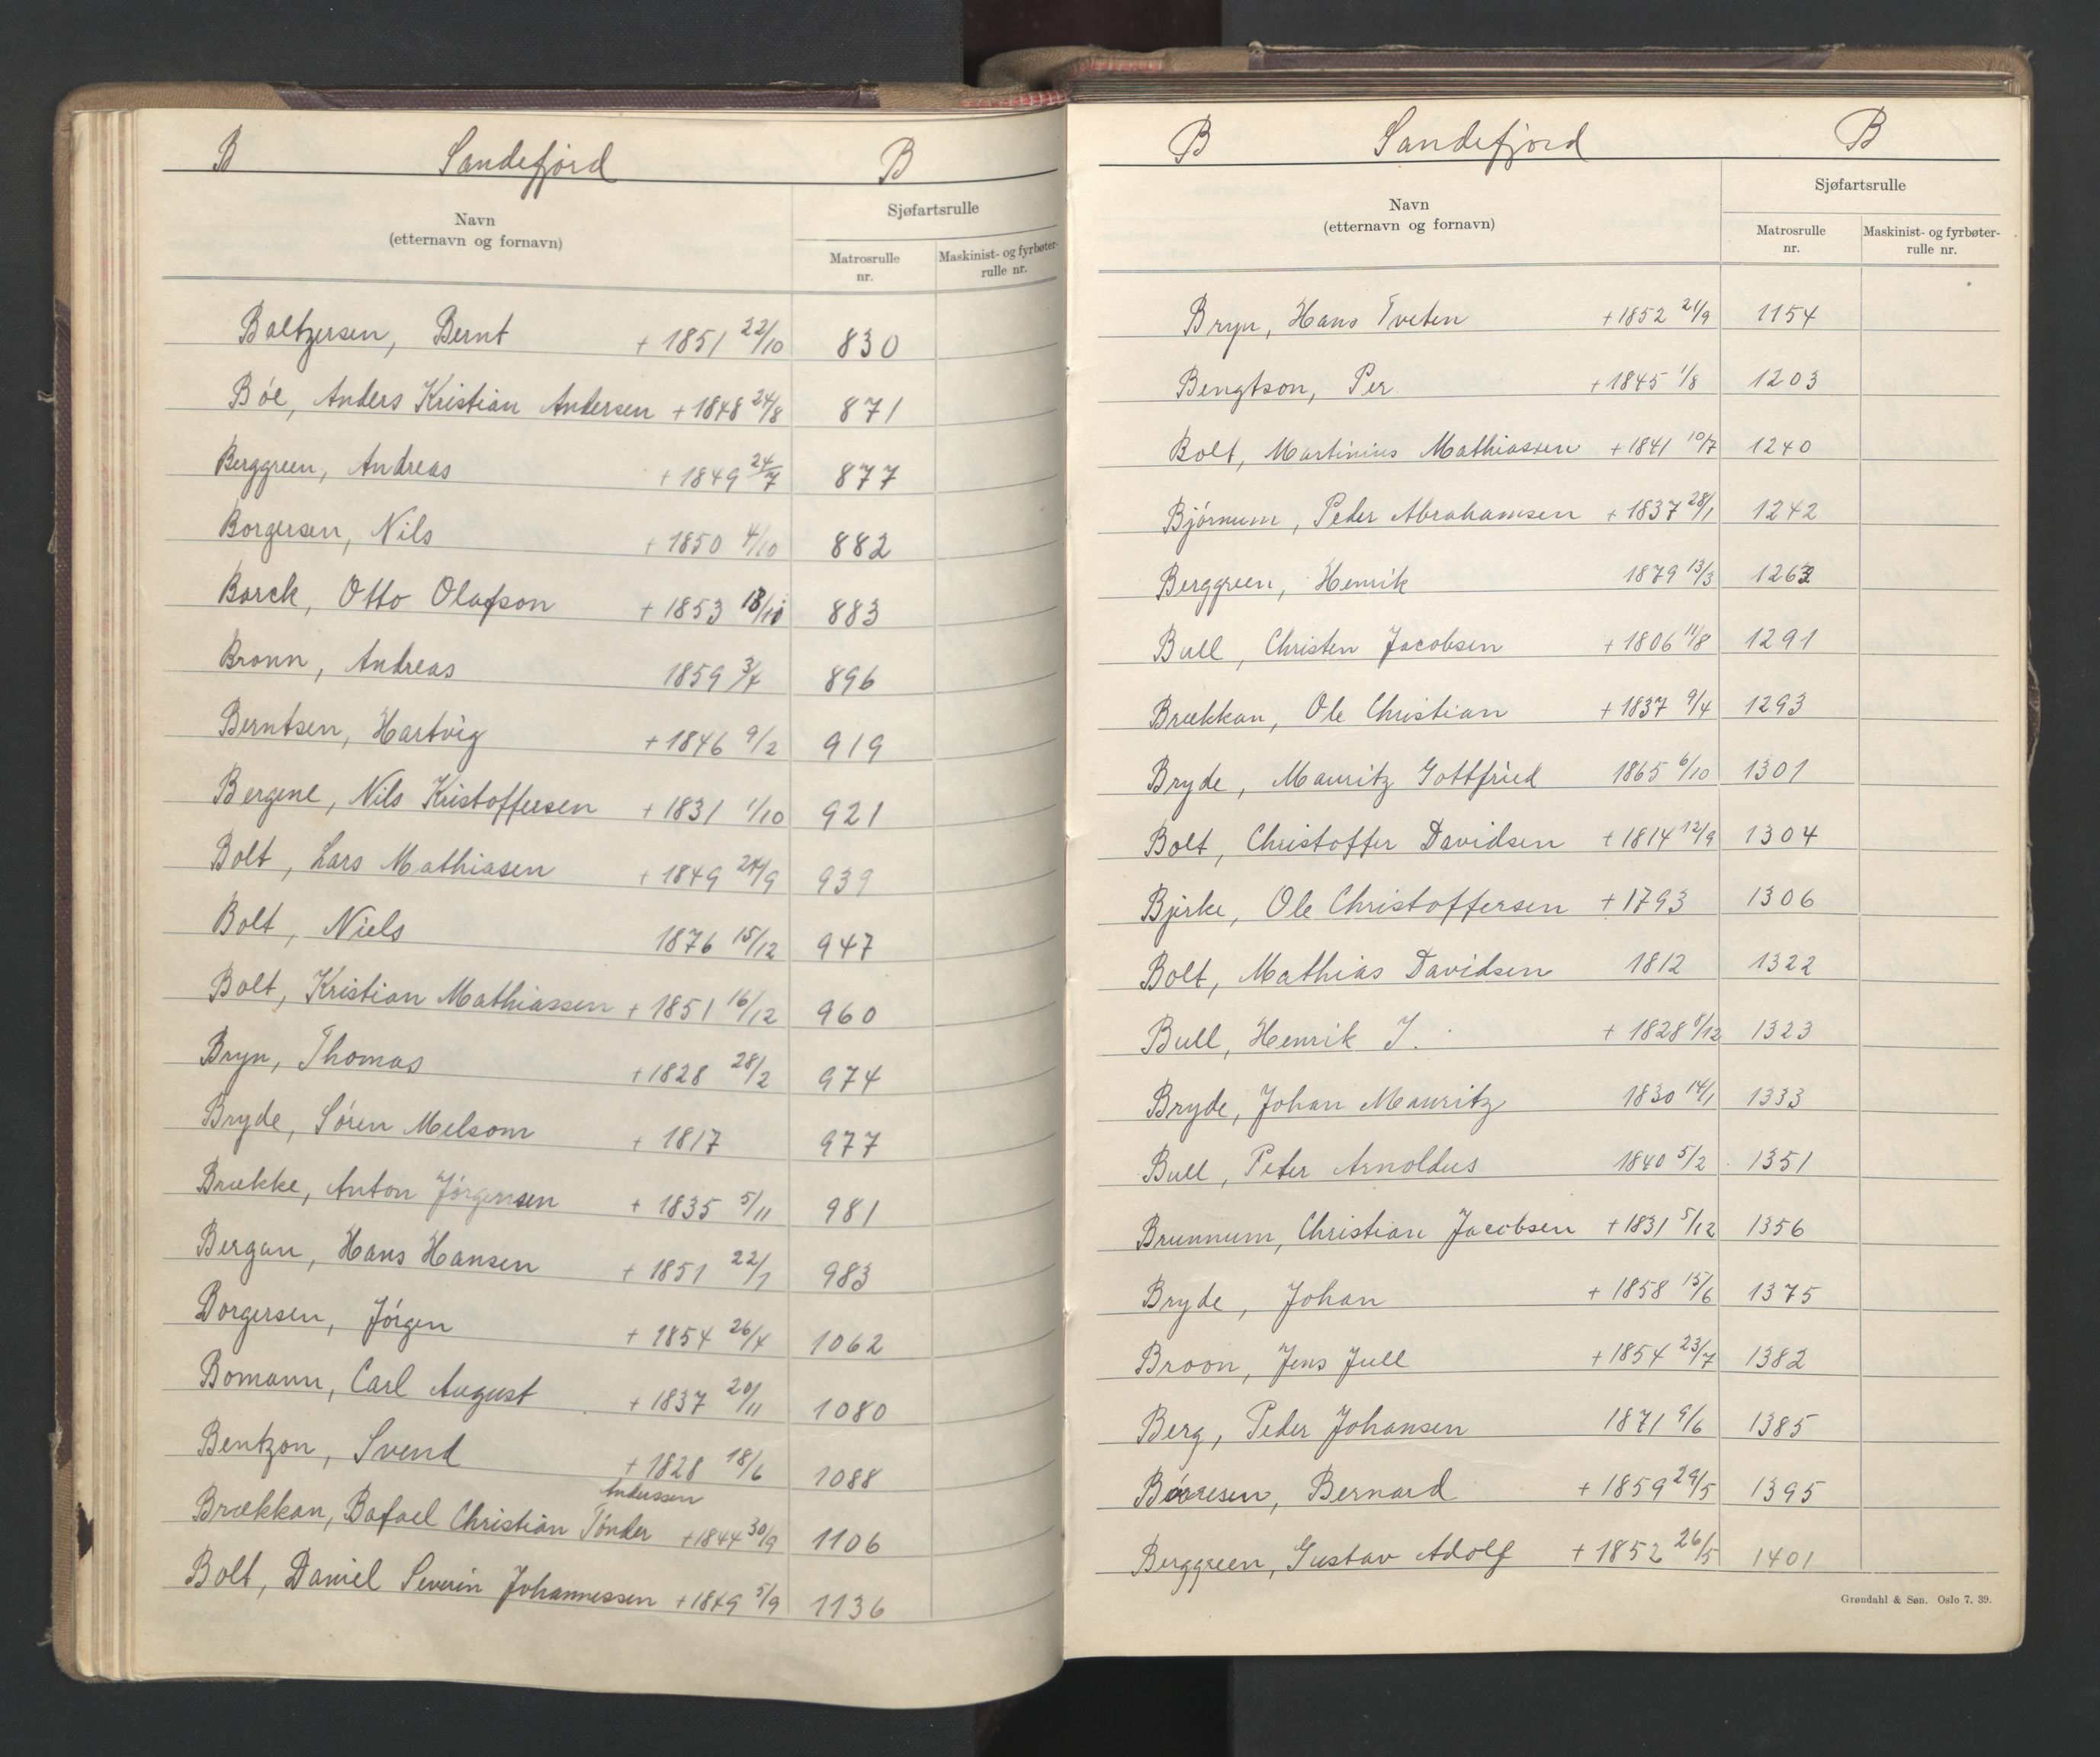 B Sandefjord B
Navn
(etternavn og fornavn)
Sjøfartsrulle
Matrosrulle
nr.
Maskinist- og fyrbøter-
rulle nr.
Baltzersen, Bernt + 1851 22/10 830
Bøe, Anders Kristian Andersen + 1848 24/8 871
Berggreen, Andreas + 1849 24/7 877
Borgersen, Nils + 1850 4/10 882
Barck, Otto Olafson + 1853 18/10 883
Bronn, Andreas 1859 3/4 896
Berntsen, Hartvig + 1846 9/2 919
Bergene, Nils Kristoffersen + 1831 1/10 921
Bolt, Lars Mathiasen + 1849 24/9 939
Bolt, Niels 1876 15/12 947
Bolt, Kristian Mathiassen + 1851 16/12 960
Bryn, Thomas + 1828 28/2 974
Bryde, Søren Melsom + 1817 977
Brække, Anton Jørgensen + 1835 5/11 981
Bergan, Hans Hansen + 1851 22/1 983
Borgersen, Jørgen + 1854 26/4 1062
Bomann, Carl August + 1837 20/11 1080
Bentzon, Svend + 1828 18/6 1088
Anderssen
Brækkan, Bafael Christian Tønder + 1844 30/9 1106
Bolt, Daniel Severin Johannessen + 1849 5/9 1136
B Sandefjord B
Navn
(etternavn og fornavn)
Sjøfartsrulle
Matrosrulle
nr.
Maskinist- og fyrbøter-
rulle nr.
Bryn, Hans Tveten + 1852 21/9 1154
Bengtson, Per + 1845 1/8 1203
Bolt, Martinius Mathiassen + 1841 10/7 1240
Bjørnum, Peder Abrahamsen + 1837 28/1 1242
Berggreen, Henrik 1879 13/3 1263
Bull, Christen Jacobsen + 1806 11/8 1291
Brækkan, Ole Christian + 1837 9/4 1293
Bryde, Mauritz Gottfried 1865 6/10 1301
Bolt, Christoffer Davidsen + 1814 12/9 1304
Bjerke, Ole Christoffersen + 1793 1306
Bolt, Mathias Davidsen 1812 1322
Bull, Henrik J. + 1828 8/12 1323
Bryde, Johan Mauritz 1830 14/1 1333
Bull, Peter Arnoldus 1840 5/2 1351
Brunnum, Christian Jacobsen + 1831 5/12 1356
Bryde, Johan + 1858 15/6 1375
Broon, Jens Juell + 1854 23/7 1382
Berg, Peder Johansen 1871 9/6 1385
Børresen, Bernard + 1859 29/5 1395
Berggreen, Gustav Adolf + 1852 26/5 1401
Grøndahl & Søn. Oslo 7. 39.